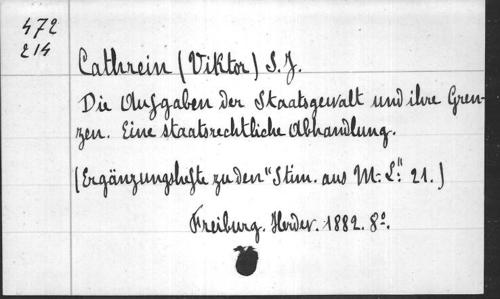 472
214
Cathrein (Viktor) S. J.
Die Aufgaben der Staatsgewalt und ihre Gren-
zen. Eine staatsrechtliche Abhandlung.
(Ergänzungshefte zu den "Stim. aus M.-L." 21.)
Freiburg. Herder. 1882. 8º.